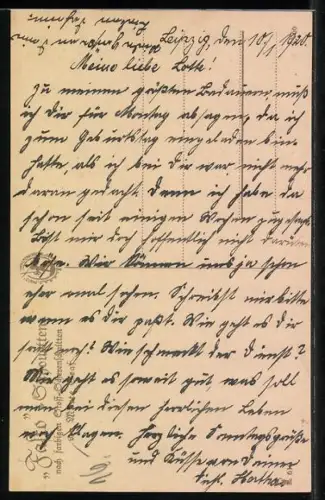 Leipzig, den 10/1 1920.
Meine liebe Lotte!
Zu meinem größten Bedauern muß
ich dir für Montag absagen, da ich
zum Geburtstag eingeladen bin.
Hatte, als ich bei dir war nicht mehr
daran gedacht. Denn ich habe da
schon seit einigen Wochen zugesagt.
Bist mir doch hoffentlich nicht darum
böse. Wir können uns ja schon
eher mal sehen. Schreibst mir bitte
wenn es dir paßt. Wie geht es dir
sonst noch? Wie schmeckt der Dienst?
Mir geht es soweit gut was soll
man bei diesem herrlichen Leben
auch klagen. Herzliche Sonntagsgrüße
und Küsse von Deiner
Hertha
nach fertigen